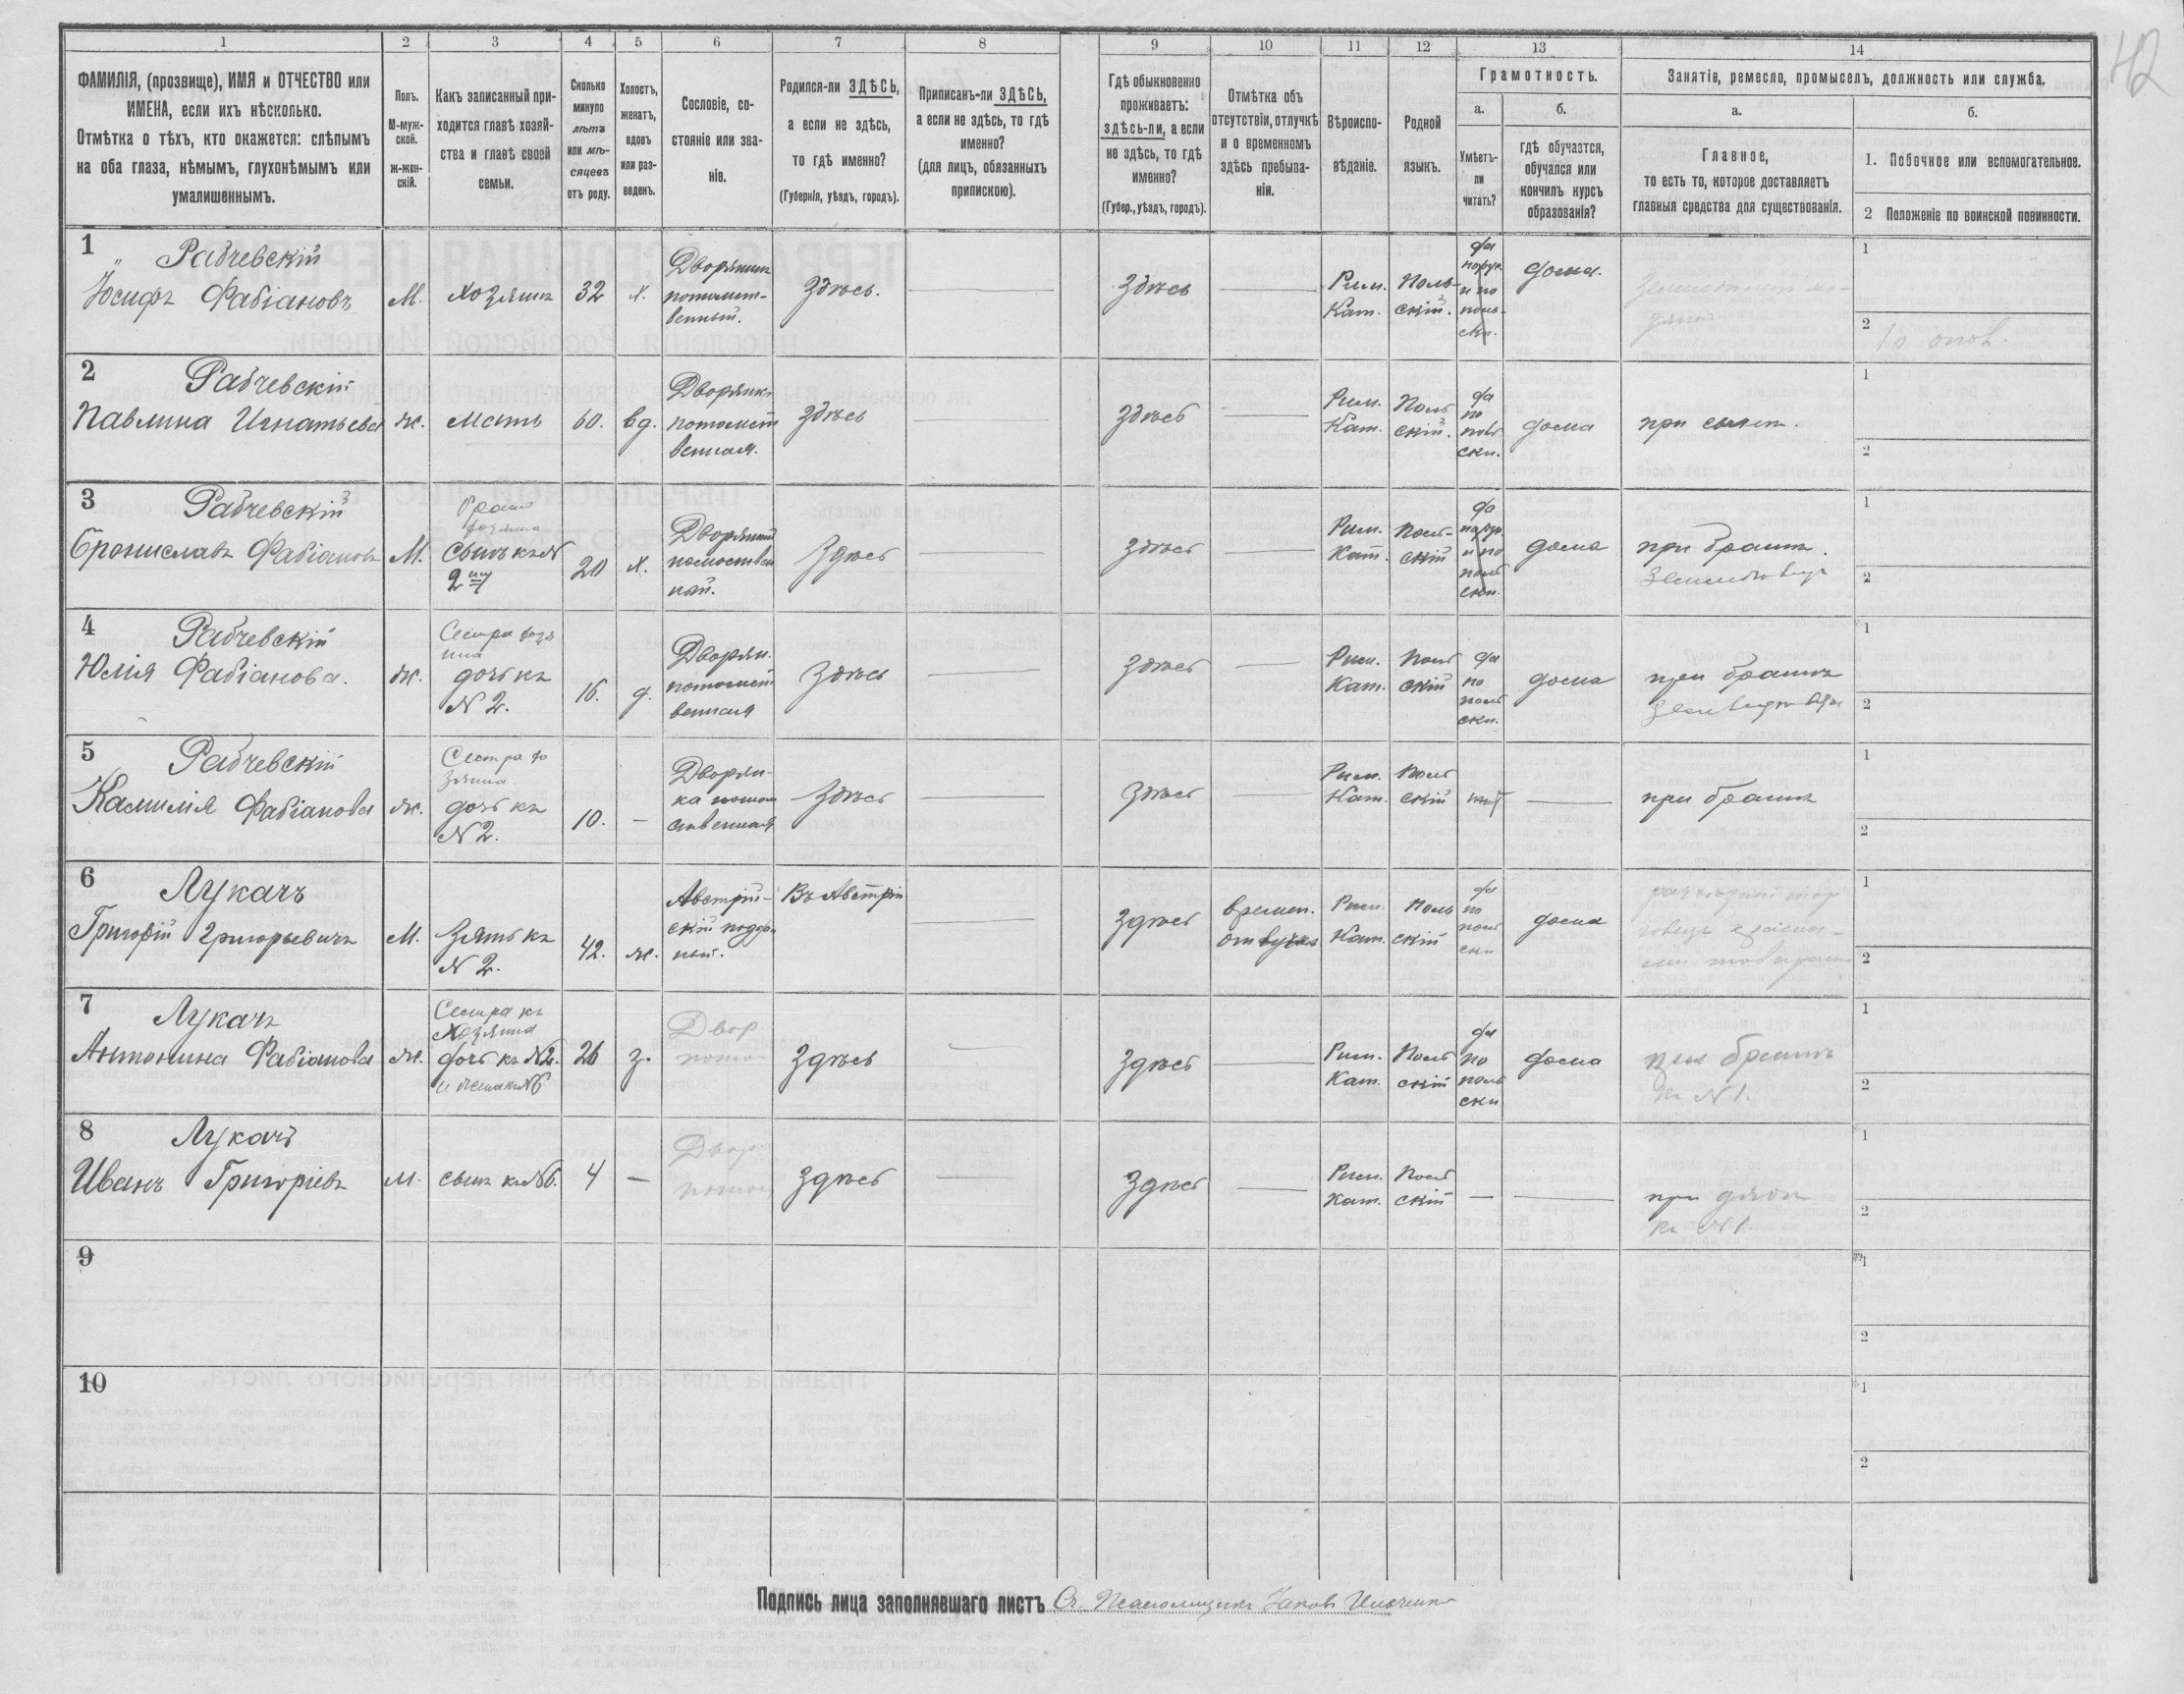 42
1 2 3 4 5 6 7 8 9 10 11 12 13 14
ФАМИЛІЯ, (прозвище), ИМЯ и ОТЧЕСТВО или
ИМЕНА, если ихъ нѣсколько.
Отмѣтка о тѣхъ, кто окажется: слѣпымъ
на оба глаза, нѣмымъ, глухонѣмымъ или
умалишеннымъ.
Полъ.
М-муж-
ской.
ж-жен-
скій.
Какъ записанный при-
ходится главѣ хозяй-
ства и главѣ своей
семьи.
Сколько
минуло
лѣтъ
или мѣ-
сяцевъ
отъ роду.
Холостъ,
женатъ,
вдовъ
или раз-
веденъ.
Сословіе, со-
стояніе или зва-
ніе.
Родился-ли ЗДѢСЬ,
а если не здѣсь,
то гдѣ именно?
(Губернія, уѣздъ, городъ).
Приписанъ-ли ЗДѢСЬ,
а если не здѣсь, то гдѣ
именно?
(для лицъ, обязанныхъ
припискою).
Гдѣ обыкновенно
проживаетъ:
здѣсь-ли, а если
не здѣсь, то гдѣ
именно?
(Губер., уѣздъ, городъ).
Отмѣтка объ
отсутствіи, отлучкѣ
и о временномъ
здѣсь пребыва-
ніи.
Вѣроиспо-
вѣданіе.
Родной
языкъ.
Грамотность.
а.
Умѣетъ-
ли
читать?
б.
гдѣ обучается,
обучался или
кончилъ курсъ
образованія?
Занятіе, ремесло, промыселъ, должность или служба.
а.
Главное,
то есть то, которое доставляетъ
главныя средства для существованія.
б.
1. Побочное или вспомогательное.
2 Положеніе по воинской повинности.
1
Рабчевскій
Іосифъ Фабіановъ
М.
хозяинъ
32
х.
Дворянинъ
потомст-
венный.
Здѣсь.
Здѣсь
Рим.
Кат.
Поль-
скій.
да
по рус.
и по
поль-
ски.
дома.
1
2
2
Рабчевскій
Павлина Игнатьева
ж.
мать
60.
вд.
Дворянка
потомст
венная.
здѣсь
здѣсь
Рим.
Кат.
Поль
скій.
да
по
поль
ски.
дома
при сынѣ.
1
2
3
Рабчевскій
Брониславъ Фабіановъ
М.
Братъ
хозяина
Сынъ къ №
2му
20
х.
Дворянинъ
потомствен
ный.
Здѣсь
здѣсь
Рим.
Кат.
Поль-
скій
да
по рус.
и по
поль
ски.
дома
при братѣ.
1
2
4
Рабчевскій
Юлія Фабіанова.
ж.
Сестра хозя
ина
дочь къ
№ 2.
16.
д.
Дворян.
потомст
венная
Здѣсь
Здѣсь
Рим.
Кат.
Поль
скій
да
по
поль
ски.
дома
при братѣ
1
2
5
Рабчевскій
Камилія Фабіанова
ж.
Сестра хо
зяина
дочь къ
№ 2.
10.
—
Дворян-
ка потом
ственная
Здѣсь
Здѣсь
Рим.
Кат.
Поль
скій
нѣт
при братѣ
1
2
6
Лукачъ
Григорій Григорьевичъ
М.
Зять къ
№ 2.
42.
ж.
Австрій-
скій поддан
ный.
Въ Австріи
Здѣсь
времен.
отлучка
Рим.
Кат.
Поль
скій
да
по
поль
ски
дома
1
2
7
Лукачъ
Антонина Фабіанова
ж.
Сестра къ
Хозяина
дочь къ №2.
и жена к№6
26
з.
Двор
потом
Здѣсь
Здѣсь
Рим.
Кат.
Поль
скій
да
по
поль
ски
дома
при братѣ
къ №1.
1
2
8
Лукачъ
Иванъ Григоріевъ
М.
сынъ къ №6.
4
—
Двор
потом
Здѣсь
Здѣсь
Рим.
Кат.
Поль
скій
—
при дядѣ
къ №1.
1
2
9
1
2
10
1
2
Подпись лица заполнявшаго листъ Сч. Псаломщикъ Іаковъ